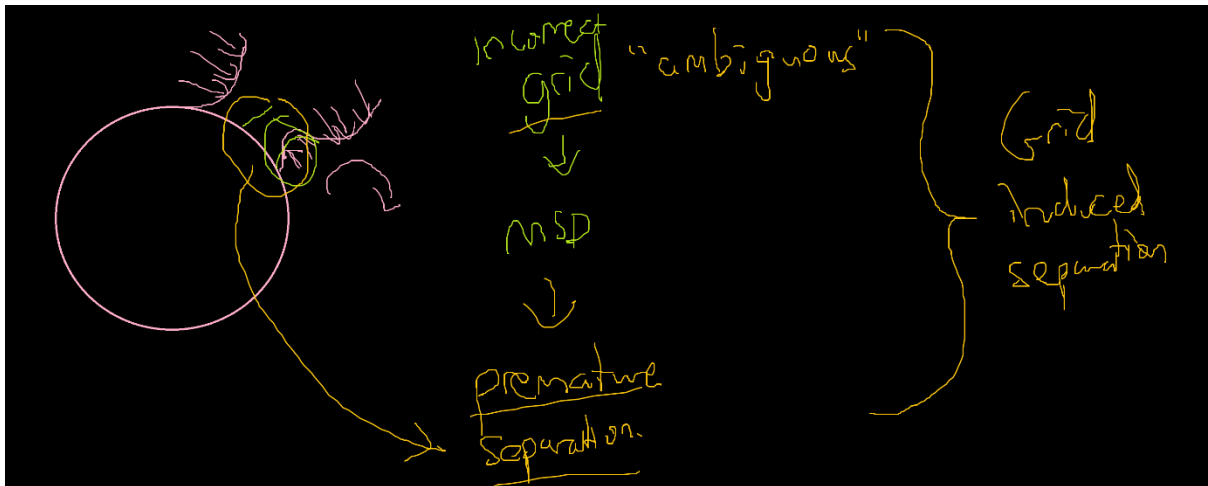 Incorrect
grid
"ambiguous"
↓
MSD
↓
premature
separation.
Grid
Induced
separation